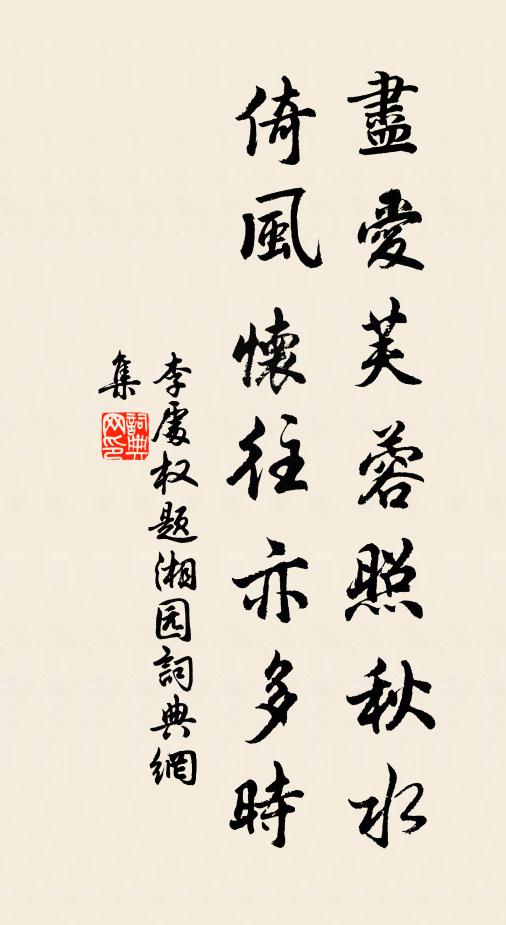 盡愛芙蓉照秋水
倚風懷往亦多時
李處权题湘园詞典網
集
詞典
网印